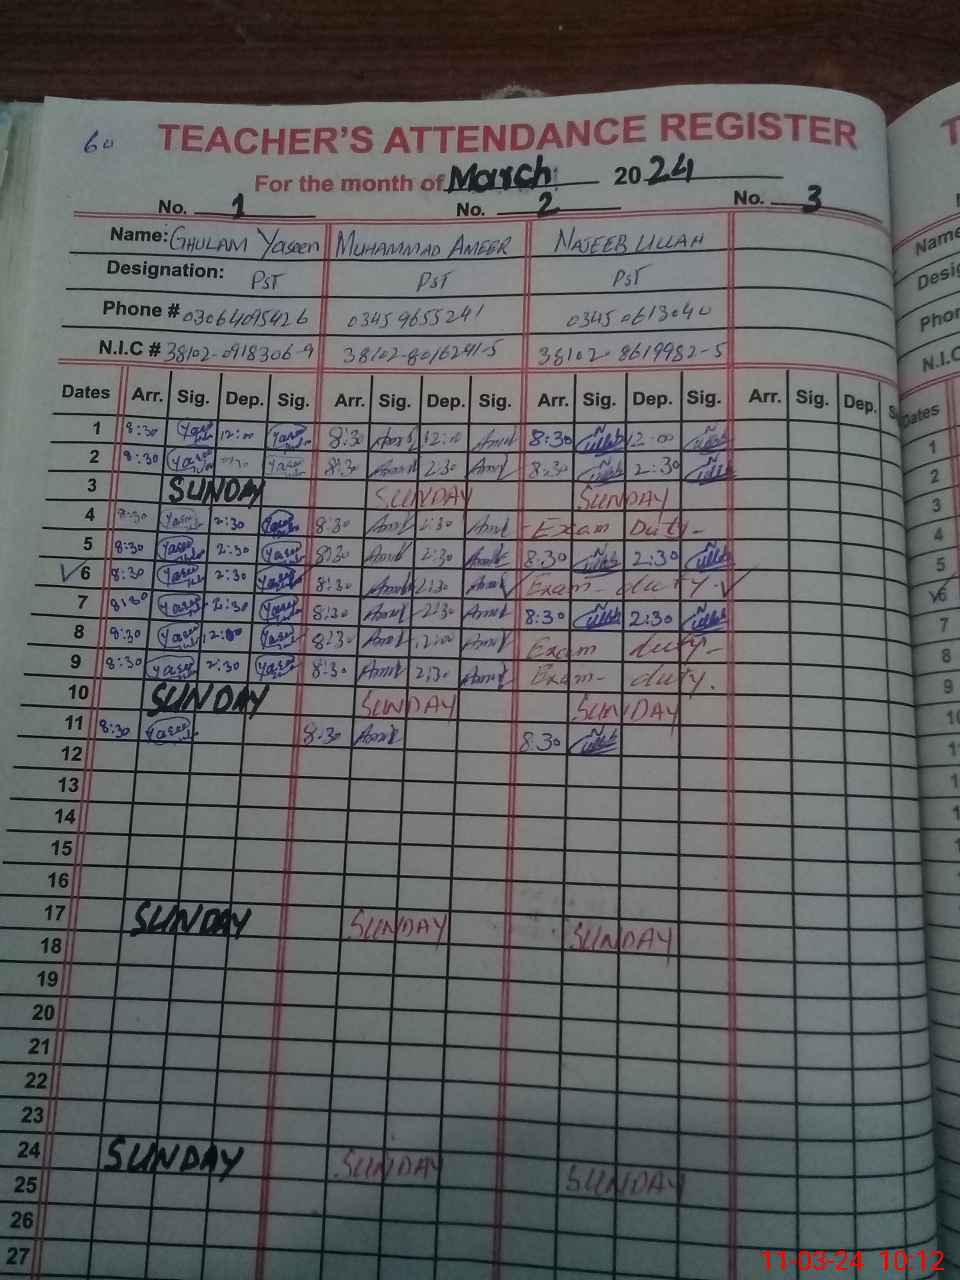 60 TEACHER'S ATTENDANCE REGISTER
For the month of March 2024
No. 1 No. 2 No. 3
Name: GHULAM Yaseen MUHAMMAD AMEER NAJEEB ULLAH
Designation: PST PST PST
Phone # 03064095426 03459655241 03450613040
N.I.C # 38102-0918306-9 38102-8016241-5 38102-8619982-5
Dates Arr. Sig. Dep. Sig. Arr. Sig. Dep. Sig. Arr. Sig. Dep. Sig. Arr. Sig. Dep.
1 8:30 12:00 8:30 12:00 8:30 12:00
2 8:30 8:30 2:30 8:30 2:30
3 SUNDAY SUNDAY SUNDAY
4 8:30 2:30 8:30 2:30 Exam Duty-
5 8:30 2:30 8:30 2:30 8:30 2:30
6 8:30 2:30 8:30 2:30 Exam- duty-
7 8:30 2:30 8:30 2:30 8:30 2:30
8 8:30 12:00 8:30 12:00 Exam duty-
9 8:30 2:30 8:30 2:30 Exam- duty.
10 SUNDAY SUNDAY SUNDAY
11 8:30 8:30 8:30
12
13
14
15
16
17 SUNDAY SUNDAY SUNDAY
18
19
20
21
22
23
24 SUNDAY SUNDAY SUNDAY
25
26
27
T
Name
Desig
Phon
N.I.C
Dates
1
2
3
4
5
6
7
8
9
10
11-03-24 10:12